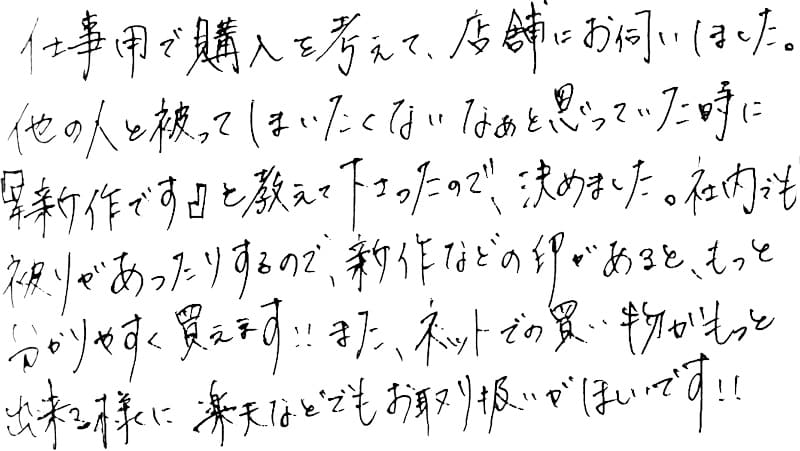 仕事用で購入を考えて、店舗にお伺いしました。
他の人と被ってしまいたくないなぁと思っていた時に
『新作です』と教えて下さったので、決めました。社内でも
被りがあったりするので、新作などの印があると、もっと
分かりやすく買えます!! また、ネットでの買い物がもっと
出来る様に楽天などでもお取り扱いがほしいです!!